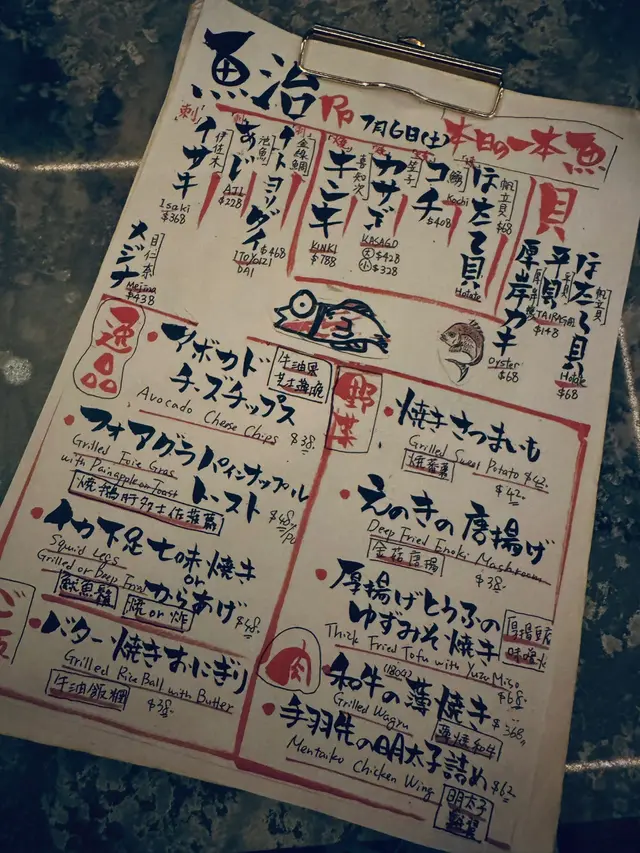 魚治
7月6日(土)
本日の一本魚
刺
イサキ
伊佐木
Isaki
$368
あじ
池魚
AJI
$228
イトヨリダイ
金線鯛
$468
ITOYORI
DAI
キンキ
喜知次
KINKI
$788
カサゴ
KASAGO
大 $428
小 $328
コチ
Kochi
$408
ほたて貝
帆立貝
$68
Hotate
メジナ
目仁奈
Mejina
$438
貝
ほたて貝
帆立貝
Hotate
$68
平貝
平貝
TAIRAGAI
$148
厚岸カキ
Oyster
$68
逸品
アボカド
チーズチップス
牛油果
芝士薄脆
Avocado Cheese Chips
$38.
フォアグラパインナップル
トースト
Grilled Foie Gras
with Painapple on Toast
$48/PC
焼鵝肝多士佐菠蘿
イカ下足七味焼き
or
からあげ
Squid Legs
Grilled or Deep Fried
$48.
魷魚鬚
焼 or 炸
ご飯
バター焼きおにぎり
Grilled Rice Ball with Butter
牛油飯糰
$38.
野菜
焼きさつまいも
Grilled Sweet Potato $42
焼蕃薯
$42.
えのきの唐揚げ
Deep Fried Enoki Mushroom
金菇唐揚
$38.
厚揚げとうふの
ゆずみそ焼き
厚揚豆腐
Thick Fried Tofu with Yuzu Miso
$68.
肉
和牛の薄焼き
(180g)
Grilled Wagyu
$368.
薄焼和牛
手羽先の明太子詰め
Mentaiko Chicken Wing
$62
明太子
雞翼